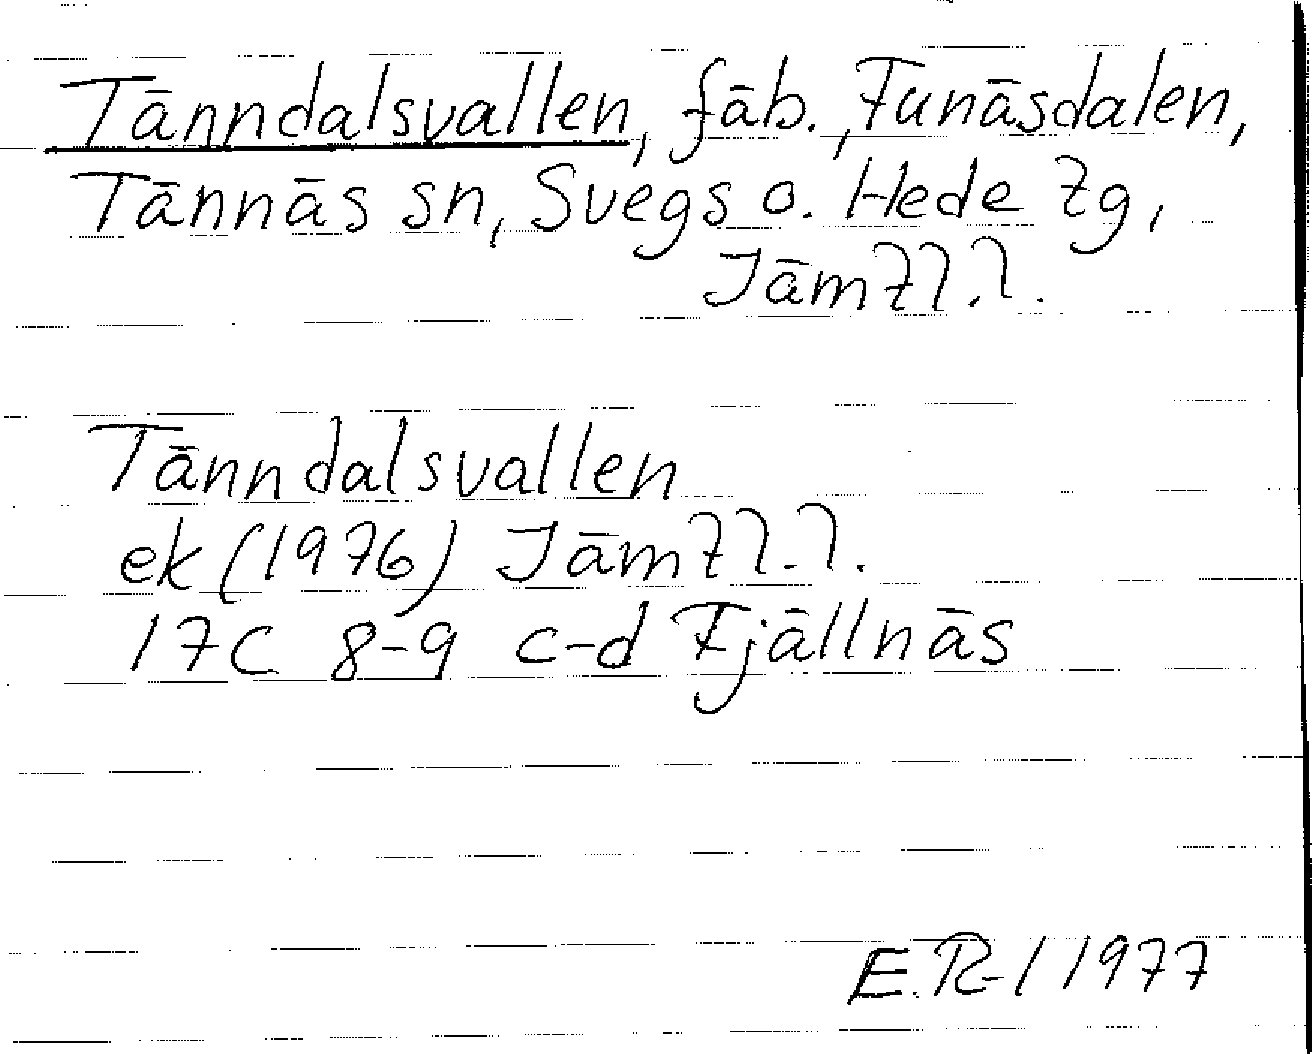 Tänndalsvallen, fäb., Funäsdalen,
Tännäs sn, Svegs o. Hede tg,
Jämtl.l.
Tänndalsvallen
ek (1976) Jämtl.l.
17C 8-9 c-d Fjällnäs
E.R-l 1977